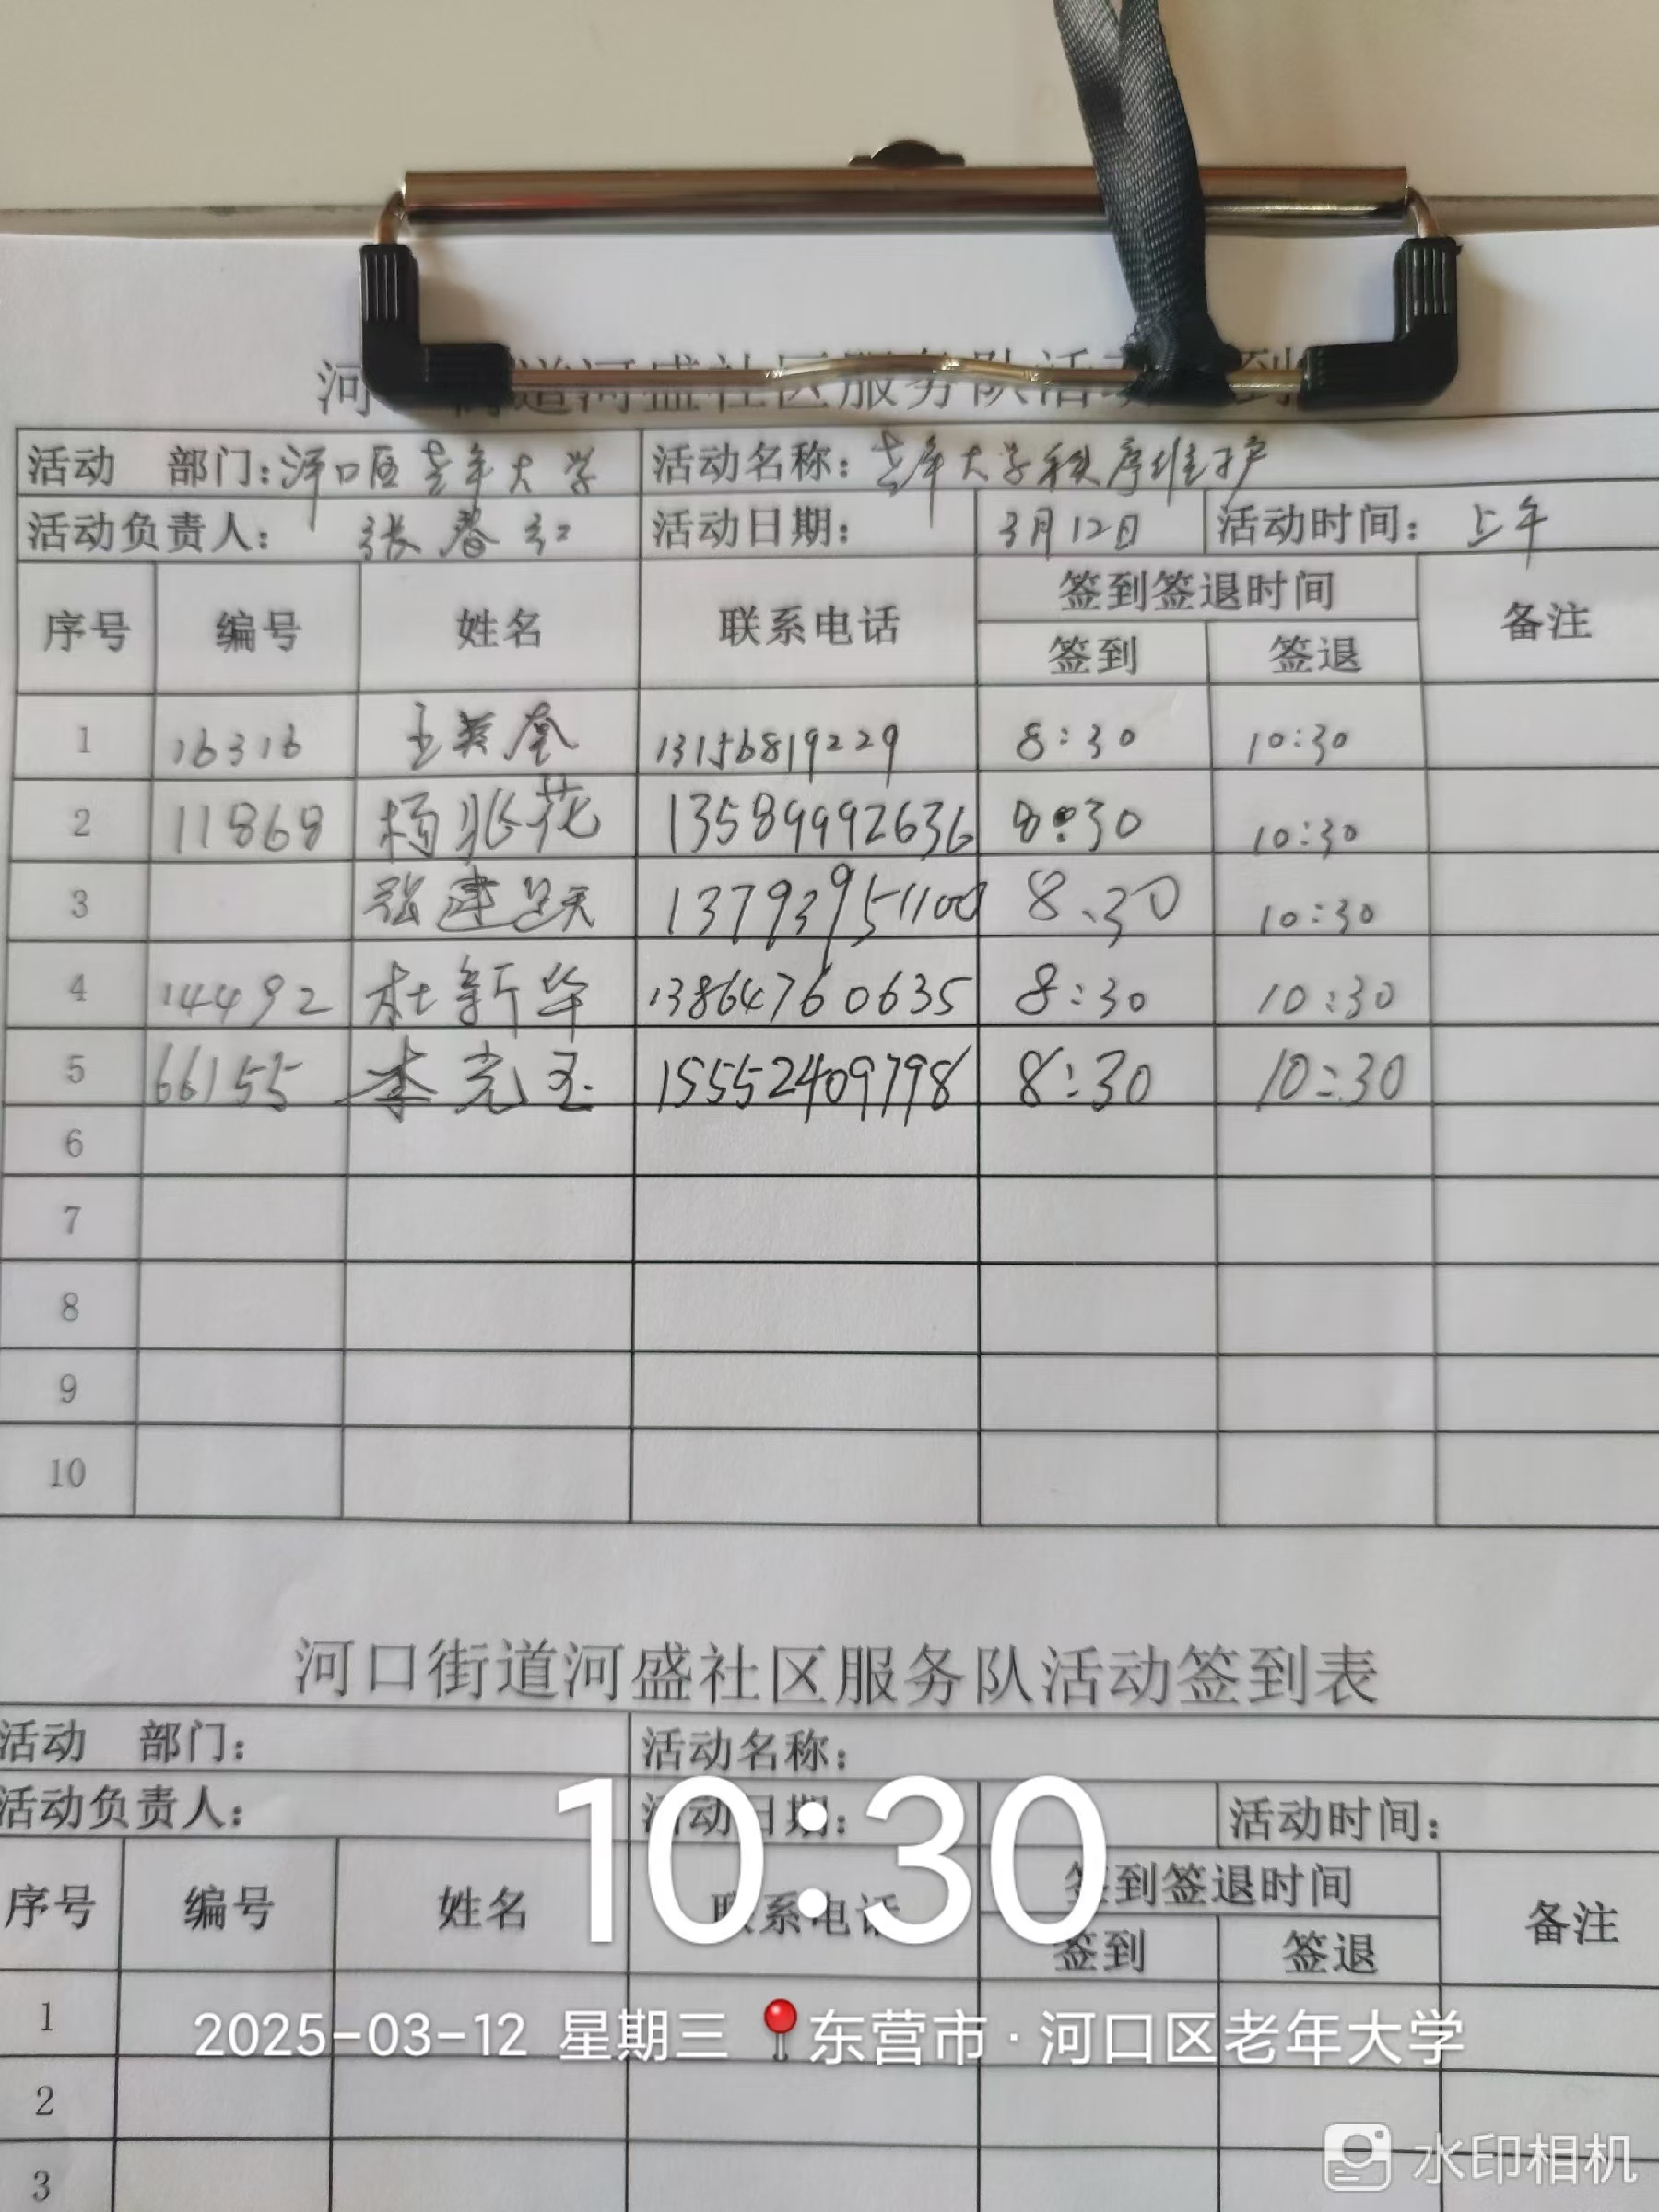 河口街道河盛社区服务队活动签到
活动 部门：河口区老年大学 活动名称：老年大学秩序维护
活动负责人： 张春红 活动日期： 3月12日 活动时间： 上午
序号 编号 姓名 联系电话 签到签退时间 备注
签到 签退
1 16316 王美 13156819229 8:30 10:30
2 11868 杨兆花 13589992636 8:30 10:30
3 张建 13793951100 8.30 10:30
4 14492 杜新华 13864760635 8:30 10:30
5 66155 李克玉 15552409798 8:30 10:30
6
7
8
9
10
河口街道河盛社区服务队活动签到表
活动 部门： 活动名称：
活动负责人： 活动日期： 活动时间：
10:30
序号 编号 姓名 联系电话 签到签退时间 备注
签到 签退
1
2025-03-12 星期三 东营市·河口区老年大学
2
3
水印相机